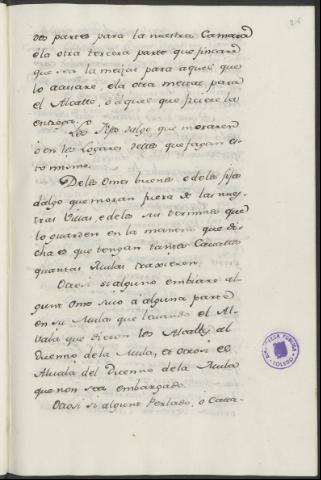 24
dos partes para la nuestra Camara
e la otra tercera parte que fincare
que sea la meitat para aquel que
lo acusare, e la otra meitat para
el Alcalle, o aquel que ficiere la
entrega. o
Los fijos dalgo que moraren
o en los Logares dellas que fagan es-
to mismo.
De los Omes buenos, e de los fijos
dalgo que moran fuera de las nues-
tras Villas, e de los sus terminos que
lo guarden en la manera que di-
cha es que tengan tantos Cavallos
quantas Mulas traxieren.
Otrosi si alguno embiare al-
gunt Ome suio á alguna parte
en su Mula que levando el Al-
vala que dieron los Alcalles al
Duenno de la Mula, et otrosi el
Alvala del Duenno de la Mula
que non sea embargado.
Otrosi si algunt Perlado, o Cava-
BIBLIOTECA PUBLICA
TOLEDO